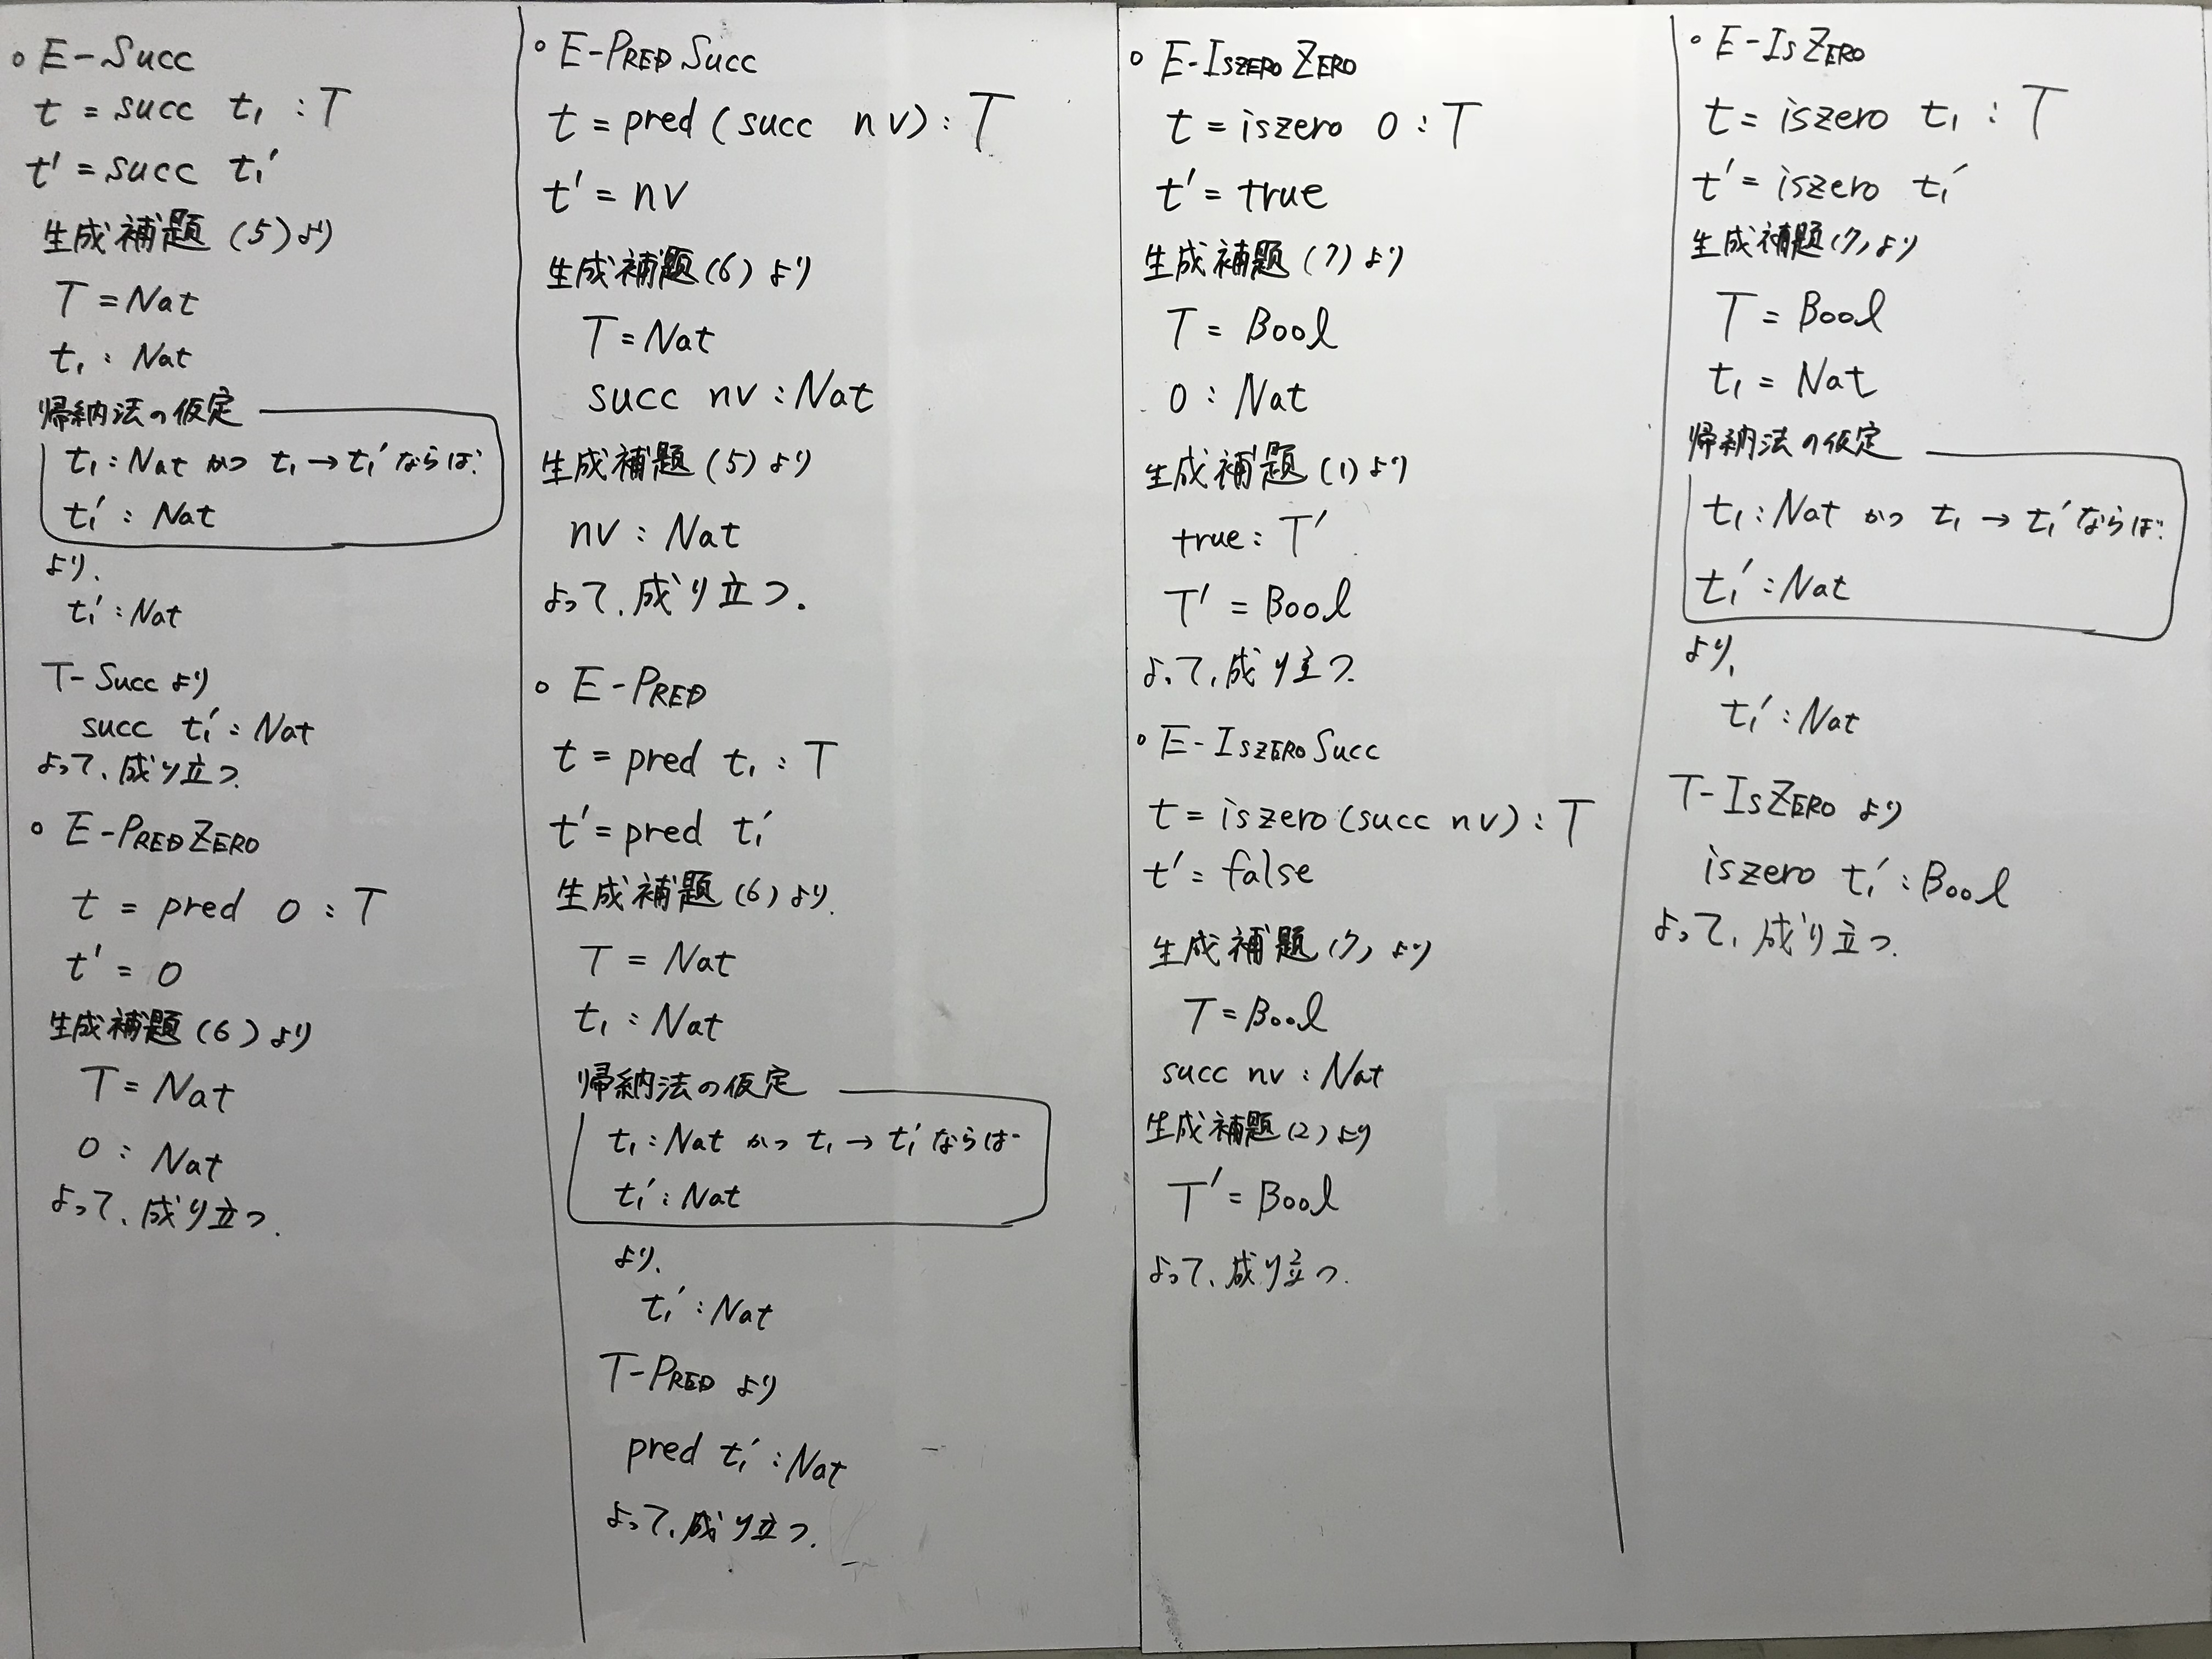 ○ E-Succ
t = succ t₁ : T
t' = succ t₁'
生成補題(5)より
T = Nat
t₁ : Nat
帰納法の仮定
t₁ : Nat かつ t₁ → t₁' ならば
t₁' : Nat
より、
t₁' : Nat
T-Succ より
succ t₁' : Nat
よって、成り立つ.
○ E-PREDZERO
t = pred 0 : T
t' = 0
生成補題(6)より
T = Nat
0 : Nat
よって、成り立つ.
○ E-PREDSucc
t = pred (succ nv) : T
t' = nv
生成補題(6)より
T = Nat
succ nv : Nat
生成補題(5)より
nv : Nat
よって、成り立つ.
○ E-PRED
t = pred t₁ : T
t' = pred t₁'
生成補題(6)より.
T = Nat
t₁ : Nat
帰納法の仮定
t₁ : Nat かつ t₁ → t₁' ならば
t₁' : Nat
より、
t₁' : Nat
T-PRED より
pred t₁' : Nat
よって、成り立つ.
○ E-ISZEROZERO
t = iszero 0 : T
t' = true
生成補題(7)より
T = Bool
0 : Nat
生成補題(1)より
true : T'
T' = Bool
よって、成り立つ.
○ E-ISZEROSucc
t = iszero (succ nv) : T
t' = false
生成補題(7)より
T = Bool
succ nv : Nat
生成補題(2)より
T' = Bool
よって、成り立つ.
○ E-ISZERO
t = iszero t₁ : T
t' = iszero t₁'
生成補題(7)より
T = Bool
t₁ = Nat
帰納法の仮定
t₁ : Nat かつ t₁ → t₁' ならば
t₁' : Nat
より、
t₁' : Nat
T-ISZERO より
iszero t₁' : Bool
よって、成り立つ.